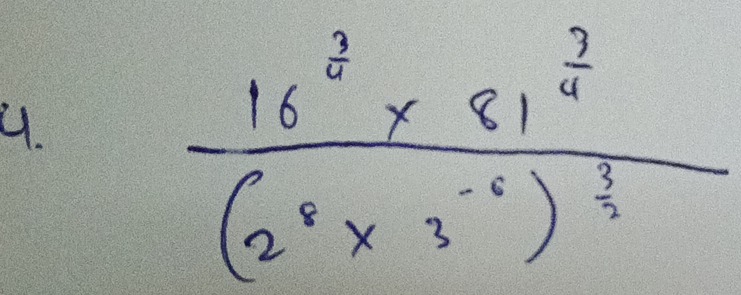 4. \frac{16^{\frac{3}{4}} \times 81^{\frac{3}{4}}}{(2^{8} \times 3^{-6})^{\frac{3}{2}}}